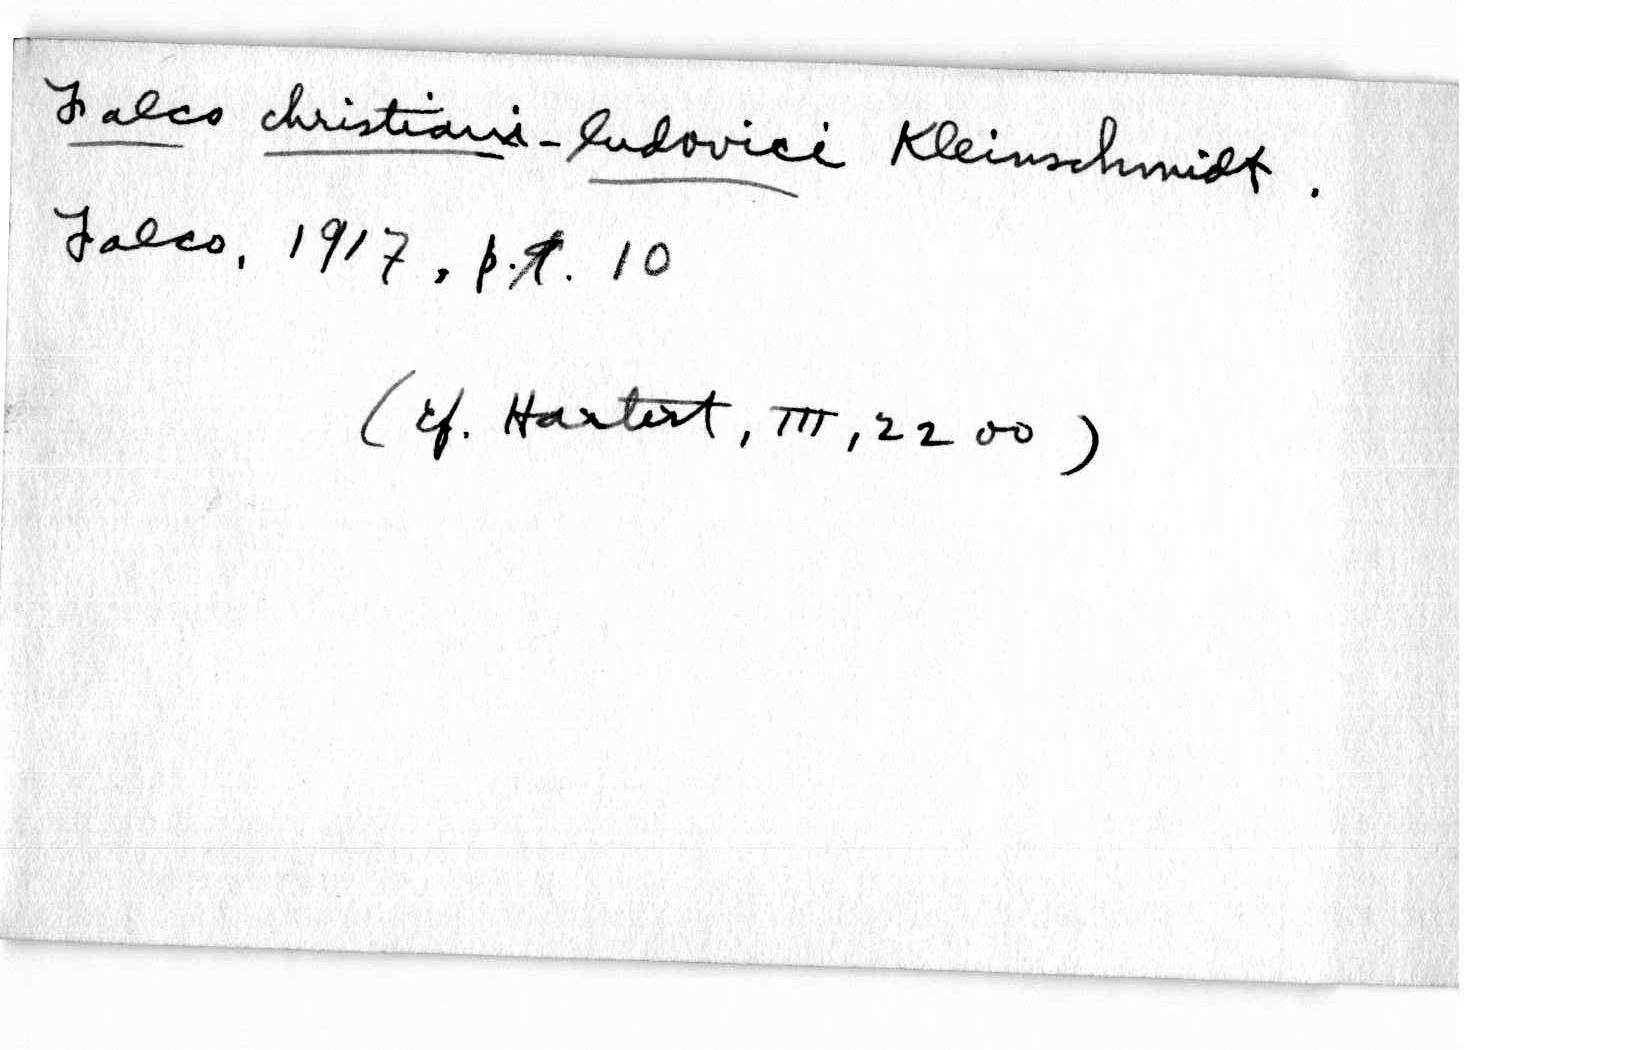 Falco christiani-ludovici Kleinschmidt.
Falco, 1917, p. 10
(cf. Hartert, III, 2200)